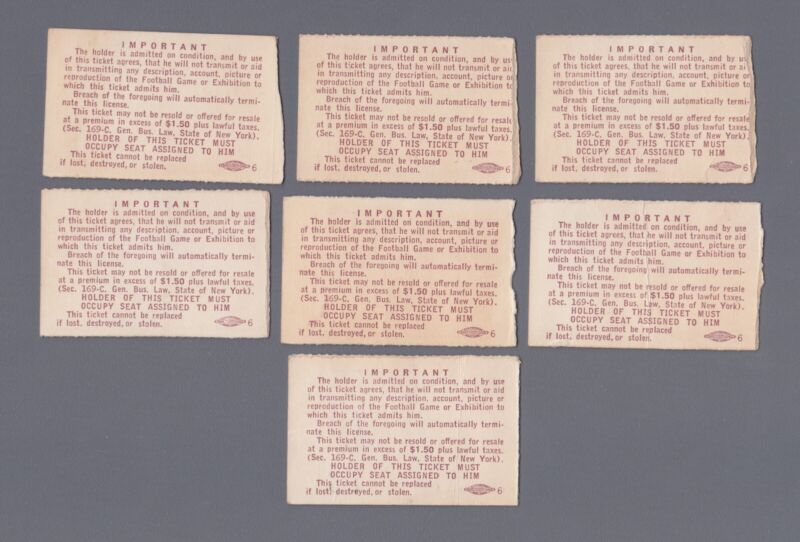 IMPORTANT
The holder is admitted on condition, and by use
of this ticket agrees, that he will not transmit or aid
in transmitting any description, account, picture or
reproduction of the Football Game or Exhibition to
which this ticket admits him.
Breach of the foregoing will automatically termi-
nate this license.
This ticket may not be resold or offered for resale
at a premium in excess of $1.50 plus lawful taxes.
(Sec. 169-C, Gen. Bus. Law, State of New York).
HOLDER OF THIS TICKET MUST
OCCUPY SEAT ASSIGNED TO HIM
This ticket cannot be replaced
if lost, destroyed, or stolen.
6
IMPORTANT
The holder is admitted on condition, and by use
of this ticket agrees, that he will not transmit or aid
in transmitting any description, account, picture or
reproduction of the Football Game or Exhibition to
which this ticket admits him.
Breach of the foregoing will automatically termi-
nate this license.
This ticket may not be resold or offered for resale
at a premium in excess of $1.50 plus lawful taxes.
(Sec. 169-C, Gen. Bus. Law, State of New York).
HOLDER OF THIS TICKET MUST
OCCUPY SEAT ASSIGNED TO HIM
This ticket cannot be replaced
if lost, destroyed, or stolen.
6
IMPORTANT
The holder is admitted on condition, and by use
of this ticket agrees, that he will not transmit or aid
in transmitting any description, account, picture or
reproduction of the Football Game or Exhibition to
which this ticket admits him.
Breach of the foregoing will automatically termi-
nate this license.
This ticket may not be resold or offered for resale
at a premium in excess of $1.50 plus lawful taxes.
(Sec. 169-C, Gen. Bus. Law, State of New York).
HOLDER OF THIS TICKET MUST
OCCUPY SEAT ASSIGNED TO HIM
This ticket cannot be replaced
if lost, destroyed, or stolen.
6
IMPORTANT
The holder is admitted on condition, and by use
of this ticket agrees, that he will not transmit or aid
in transmitting any description, account, picture or
reproduction of the Football Game or Exhibition to
which this ticket admits him.
Breach of the foregoing will automatically termi-
nate this license.
This ticket may not be resold or offered for resale
at a premium in excess of $1.50 plus lawful taxes.
(Sec. 169-C, Gen. Bus. Law, State of New York).
HOLDER OF THIS TICKET MUST
OCCUPY SEAT ASSIGNED TO HIM
This ticket cannot be replaced
if lost, destroyed, or stolen.
6
IMPORTANT
The holder is admitted on condition, and by use
of this ticket agrees, that he will not transmit or aid
in transmitting any description, account, picture or
reproduction of the Football Game or Exhibition to
which this ticket admits him.
Breach of the foregoing will automatically termi-
nate this license.
This ticket may not be resold or offered for resale
at a premium in excess of $1.50 plus lawful taxes.
(Sec. 169-C, Gen. Bus. Law, State of New York).
HOLDER OF THIS TICKET MUST
OCCUPY SEAT ASSIGNED TO HIM
This ticket cannot be replaced
if lost, destroyed, or stolen.
6
IMPORTANT
The holder is admitted on condition, and by use
of this ticket agrees, that he will not transmit or aid
in transmitting any description, account, picture or
reproduction of the Football Game or Exhibition to
which this ticket admits him.
Breach of the foregoing will automatically termi-
nate this license.
This ticket may not be resold or offered for resale
at a premium in excess of $1.50 plus lawful taxes.
(Sec. 169-C, Gen. Bus. Law, State of New York).
HOLDER OF THIS TICKET MUST
OCCUPY SEAT ASSIGNED TO HIM
This ticket cannot be replaced
if lost, destroyed, or stolen.
6
IMPORTANT
The holder is admitted on condition, and by use
of this ticket agrees, that he will not transmit or aid
in transmitting any description, account, picture or
reproduction of the Football Game or Exhibition to
which this ticket admits him.
Breach of the foregoing will automatically termi-
nate this license.
This ticket may not be resold or offered for resale
at a premium in excess of $1.50 plus lawful taxes.
(Sec. 169-C, Gen. Bus. Law, State of New York).
HOLDER OF THIS TICKET MUST
OCCUPY SEAT ASSIGNED TO HIM
This ticket cannot be replaced
if lost, destroyed, or stolen.
6